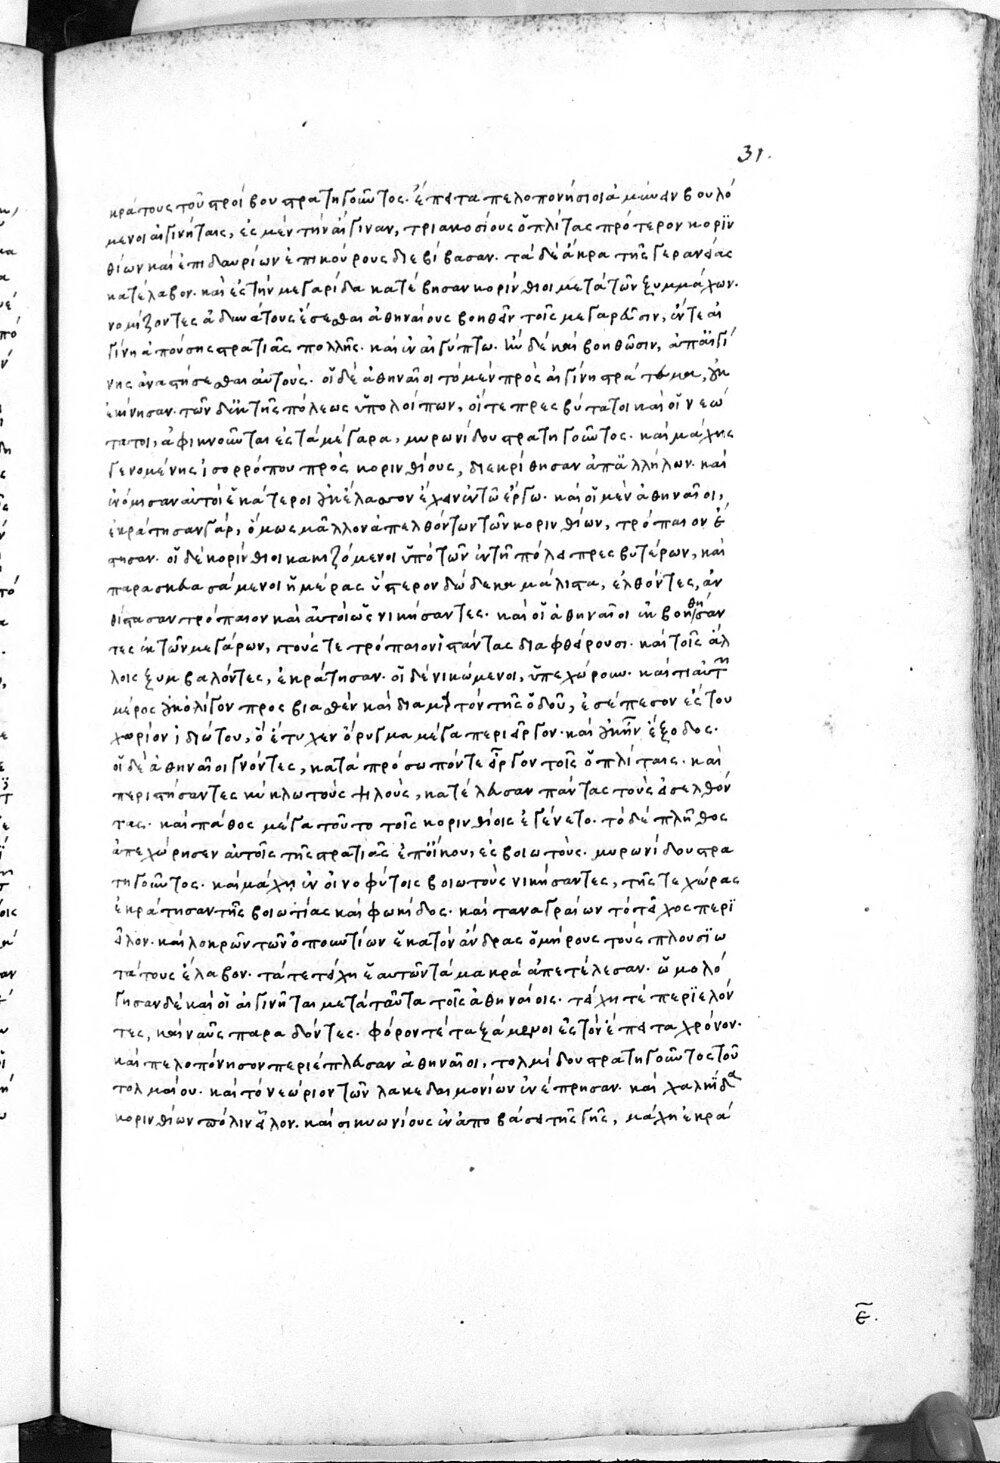 31.
κράτους τοῦ στροίβου στρατηγοῦντος. ἔπειτα πελοποννήσιοι ἀμύνειν βουλό
μενοι αἰγινήταις, ἐς μὲν τὴν αἴγιναν, τριακοσίους ὁπλίτας πρότερον κορϊν
θίων καὶ ἐπιδαυρίων ἐπικούρους διεβίβασαν. τὰ δὲ ἄκρα τῆς γερανείας
κατέλαβον. καὶ ἐς τὴν μεγαρίδα κατέβησαν κορίνθιοι μετὰ τῶν ξυμμάχων.
νομίζοντες ἀδυνάτους ἔσεσθαι ἀθηναίους βοηθεῖν τοῖς μεγαρεῦσιν, ἔν τε αἰ
γίνη ἀπούσης στρατιᾶς πολλῆς. καὶ ἐν αἰγύπτω. ἢν δὲ καὶ βοηθῶσιν, ἀπ' αἰγί
νης ἀναστήσεσθαι αὐτούς. οἱ δὲ ἀθηναῖοι τὸ μὲν πρὸς αἰγίνη στράτευμα, οὐκ
ἐκίνησαν. τῶν δ' ἐκ τῆς πόλεως ὑπολοίπων, οἵ τε πρεσβύτατοι καὶ οἱ νεώ
τατοι, ἀφικνοῦνται ἐς τὰ μέγαρα, μυρωνίδου στρατηγοῦντος. καὶ μάχης
γενομένης ἰσορρόπου πρὸς κορινθίους, διεκρίθησαν ἀπ' ἀλλήλων. καὶ
ἐνόμισαν αὐτοὶ ἑκάτεροι οὐκ ἔλασσον ἔχειν ἐν τῶ ἔργω. καὶ οἱ μὲν ἀθηναῖοι,
ἐκράτησαν γὰρ, ὅμως μᾶλλον ἀπελθόντων τῶν κορινθίων, τρόπαιον ἔ
στησαν. οἱ δὲ κορίνθιοι κακιζόμενοι ὑπὸ τῶν ἐν τῆ πόλει πρεσβυτέρων, καὶ
παρασκευασάμενοι ἡμέρας ὕστερον δώδεκα μάλιστα, ἐλθόντες, ἀν
θίστασαν τρόπαιον καὶ αὐτοὶ ὡς νικήσαντες. καὶ οἱ ἀθηναῖοι ἐκβοηθήσαν
τες ἐκ τῶν μεγάρων, τούς τε τρόπαιον ἱστάντας διαφθείρουσι. καὶ τοῖς ἀλ
λοις ξυμβαλόντες, ἐκράτησαν. οἱ δὲ νικώμενοι, ὑπεχώρουν. καί τι αὐτῶν
μέρος οὐκ ὀλίγον προσβιασθὲν καὶ διαμαρτὸν τῆς ὁδοῦ, ἐσέπεσον ἔς του
χωρίον ἰδιώτου, ὃ ἔτυχεν ὄρυγμα μέγα περιεῖργον. καὶ οὐκ ἦν ἔξοδος.
οἱ δὲ ἀθηναῖοι γνόντες, κατὰ πρόσωπόν τε εἶργον τοῖς ὁπλίταις. καὶ
περιστήσαντες κύκλω τοὺς ψιλοὺς, κατέλευσαν πάντας τοὺς ἐσελθόν
τας. καὶ πάθος μέγα τοῦτο τοῖς κορινθίοις ἐγένετο. τὸ δὲ πλῆθος
ἀπεχώρησεν αὐτοῖς τῆς στρατιᾶς ἐπ' οἴκου, ἐς βοιωτοὺς. μυρωνίδου στρα
τηγοῦντος. καὶ μάχη ἐν οἰνοφύτοις βοιωτοὺς νικήσαντες, τῆς τε χώρας
ἐκράτησαν τῆς βοιωτίας καὶ φωκίδος. καὶ ταναγραίων τὸ τεῖχος περϊ
εῖλον. καὶ λοκρῶν τῶν ὀπουντίων ἑκατὸν ἄνδρας ὁμήρους τοὺς πλουσϊω
τάτους ἔλαβον. τά τε τείχη ἑαυτῶν τὰ μακρὰ ἀπετέλεσαν. ὡμολό
γησαν δὲ καὶ οἱ αἰγινῆται μετὰ ταῦτα τοῖς ἀθηναίοις. τείχη τε περϊελόν
τες, καὶ ναῦς παραδόντες. φόρον τε ταξάμενοι ἐς τὸν ἔπειτα χρόνον.
καὶ πελοπόννησον περιέπλευσαν ἀθηναῖοι, τολμίδου στρατηγοῦντος τοῦ
τολμαίου. καὶ τὸ νεώριον τῶν λακεδαιμονίων ἐνέπρησαν. καὶ χαλκίδα
κορινθίων πόλιν εἷλον. καὶ σικυωνίους ἐν ἀποβάσει τῆς γῆς, μάχη ἐκρά
ε.